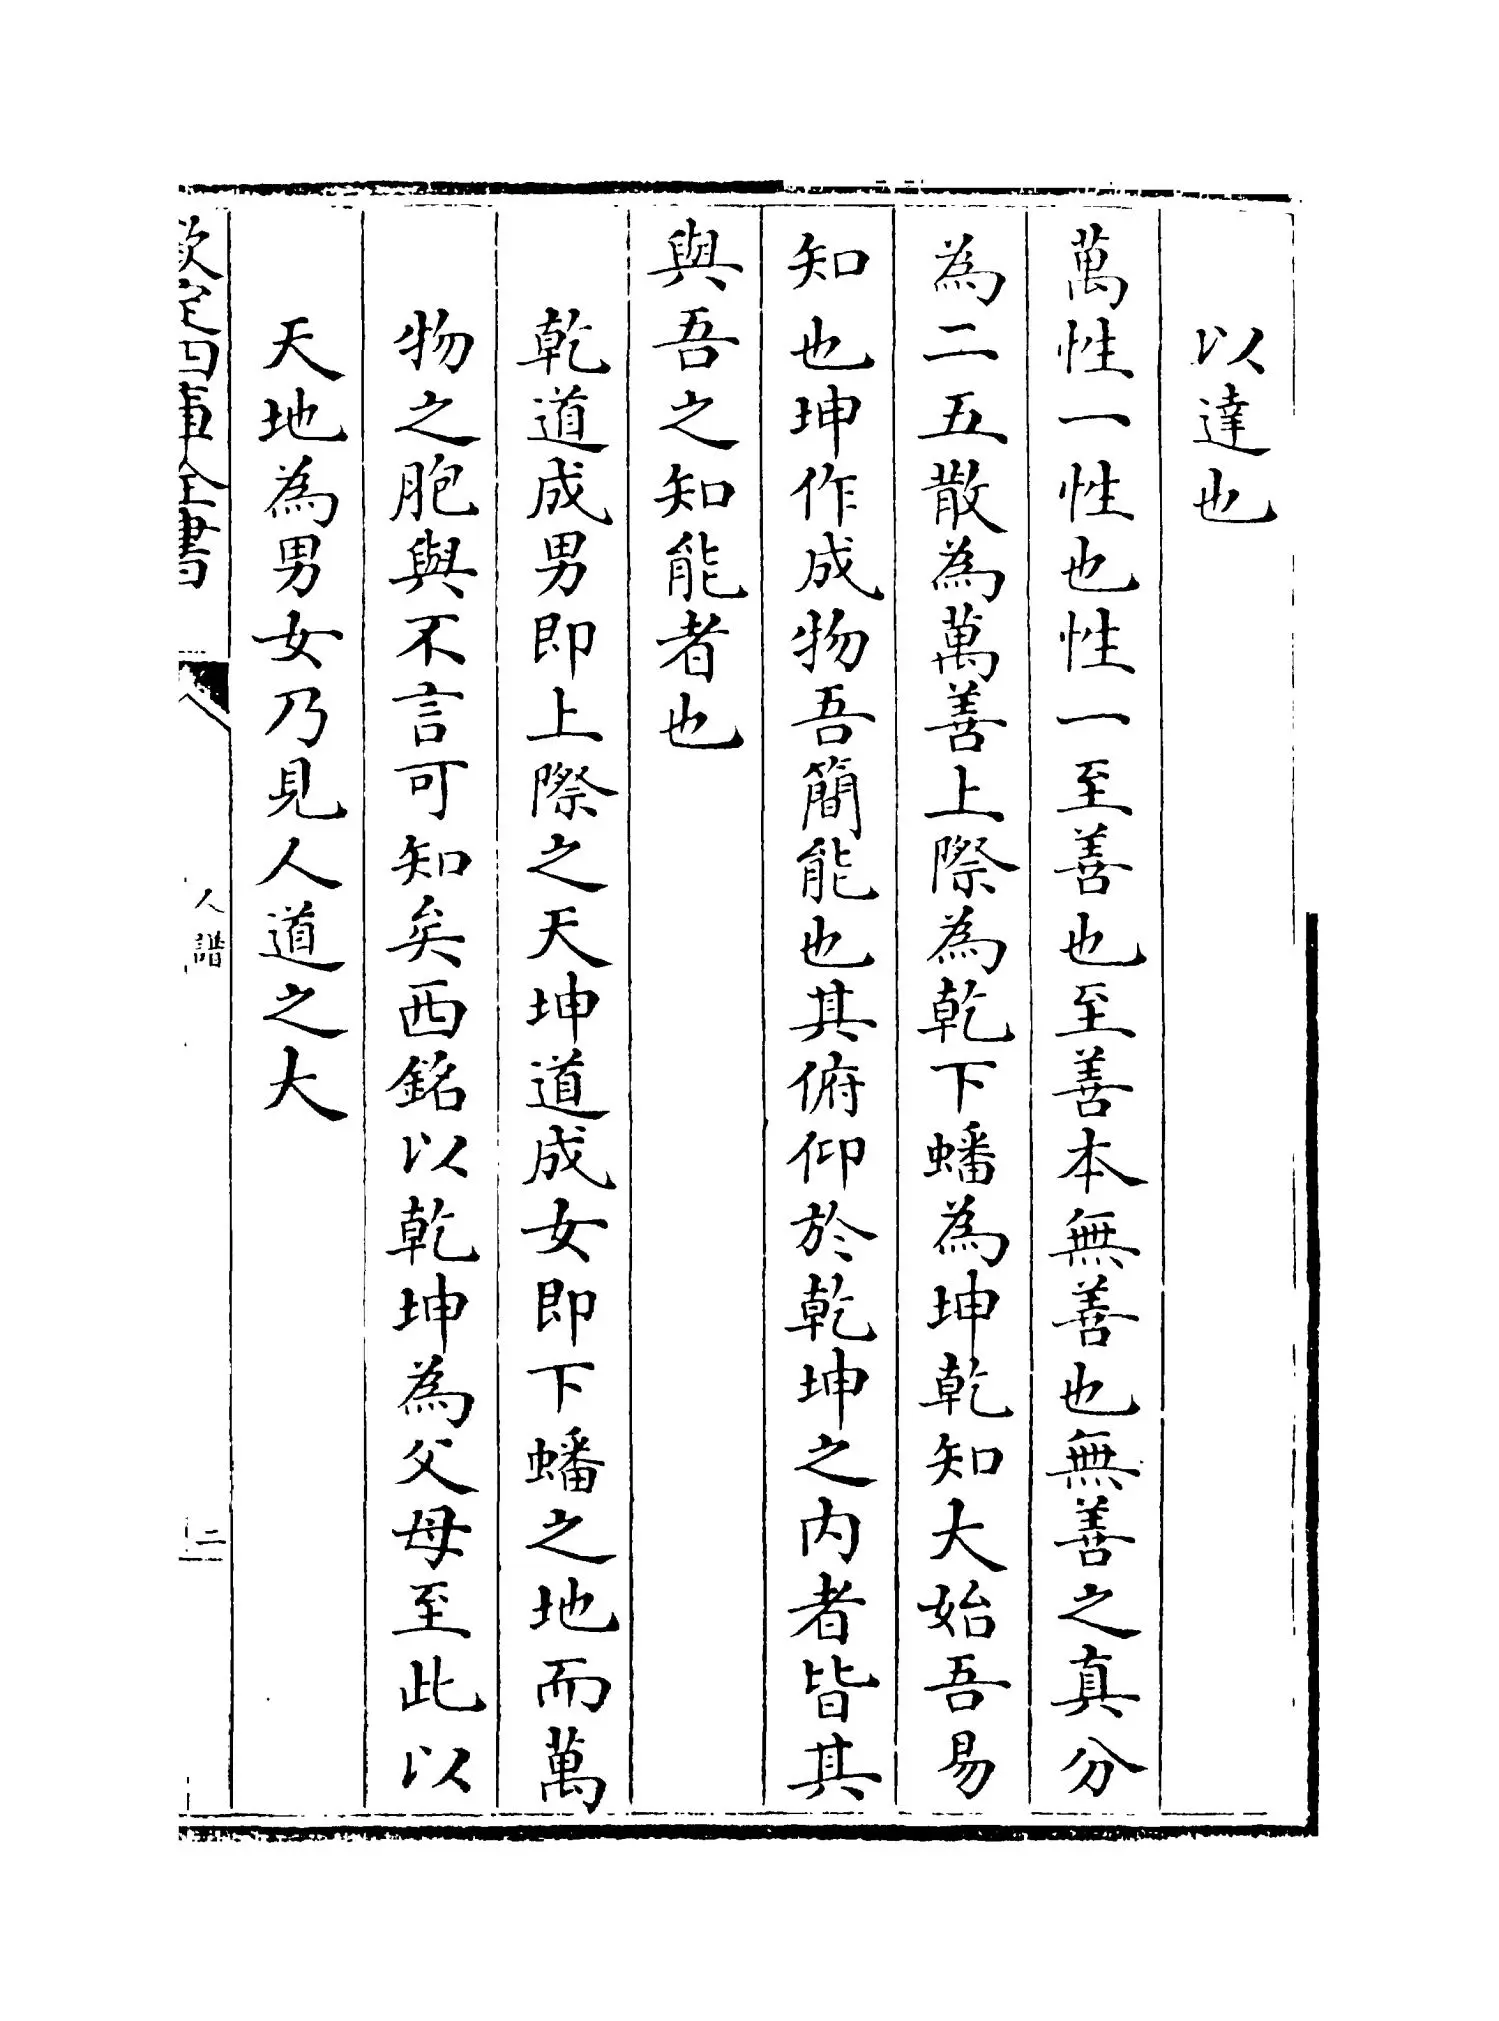 以達也
萬性一性也性一至善也至善本無善也無善之真分
為二五散為萬善上際為乾下蟠為坤乾知大始吾易
知也坤作成物吾簡能也其俯仰於乾坤之内者皆其
與吾之知能者也
乾道成男即上際之天坤道成女即下蟠之地而萬
物之胞與不言可知矣西銘以乾坤為父母至此以
天地為男女乃見人道之大
欽定四庫全書
人譜
二